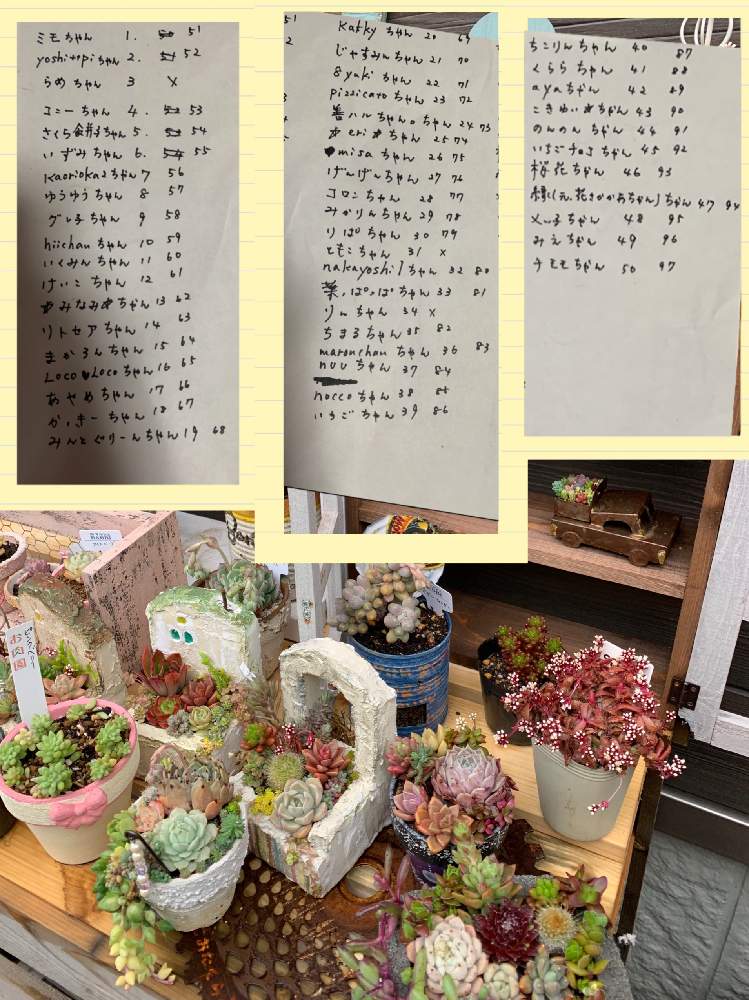 ミモちゃん 1. 50 51
yoshitopiちゃん 2. 51 52
らめちゃん 3 ×
コニーちゃん 4. 52 53
さくら餅子ちゃん 5. 53 54
いずみちゃん 6. 54 55
Kaoriokazちゃん 7 56
ゆうゆうちゃん 8 57
グレ子ちゃん 9 58
hiichanちゃん 10 59
いくみんちゃん 11 60
けいこちゃん 12 61
みなみちゃん 13 62
リトセアちゃん 14 63
まかろんちゃん 15 64
Loco♥Locoちゃん 16 65
あやめちゃん 17 66
かっきーちゃん 18 67
みんとぐりーんちゃん 19 68
51
2
Katkyちゃん 20 69
じゃすみんちゃん 21 70
8yukiちゃん 22 71
pizzicatoちゃん 23 72
ハルちゃん。ちゃん 24 73
☆eri☆ちゃん 25 74
♥misaちゃん 26 75
げ〜げ〜ちゃん 27 76
コロンちゃん 28 77
みかりんちゃん 29 78
りぱちゃん 30 79
ともこちゃん 31 ×
nakayoshi1ちゃん 32 80
葉っぱっぱちゃん 33 81
りぃちゃん 34 ×
ちまるちゃん 35 82
maronchanちゃん 36 83
nuuちゃん 37 84
noccoちゃん 38 85
いちごちゃん 39 86
ちこりんちゃん 40 87
くららちゃん 41 88
ayaちゃん 42 89
こきゅい☆ちゃん 43 90
のんのんちゃん 44 91
いちごチョコちゃん 45 92
桜花ちゃん 46 93
(元、花さかかあちゃん)ちゃん 47 94
メッ子ちゃん 48 95
みえちゃん 49 96
チモモちゃん 50 97
お肉園